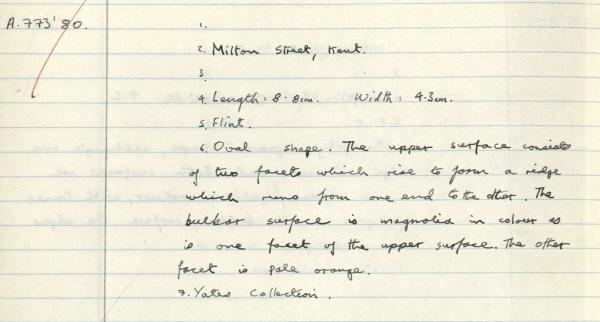 A.773'80.
1.
2. Milton Street, Kent.
3.
4. Length: 8.8cm. Width: 4.3cm.
5. Flint.
6. Oval shape. The upper surface consists
of two facets which rise to form a ridge
which runs from one end to the other. The
bulbar surface is magnolia in colour as
is one facet of the upper surface. The other
facet is pale orange.
7. Yates Collection.